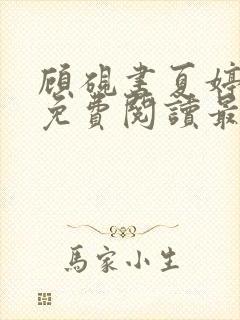 顾砚書夏婷
免費閱讀最
馬家小生